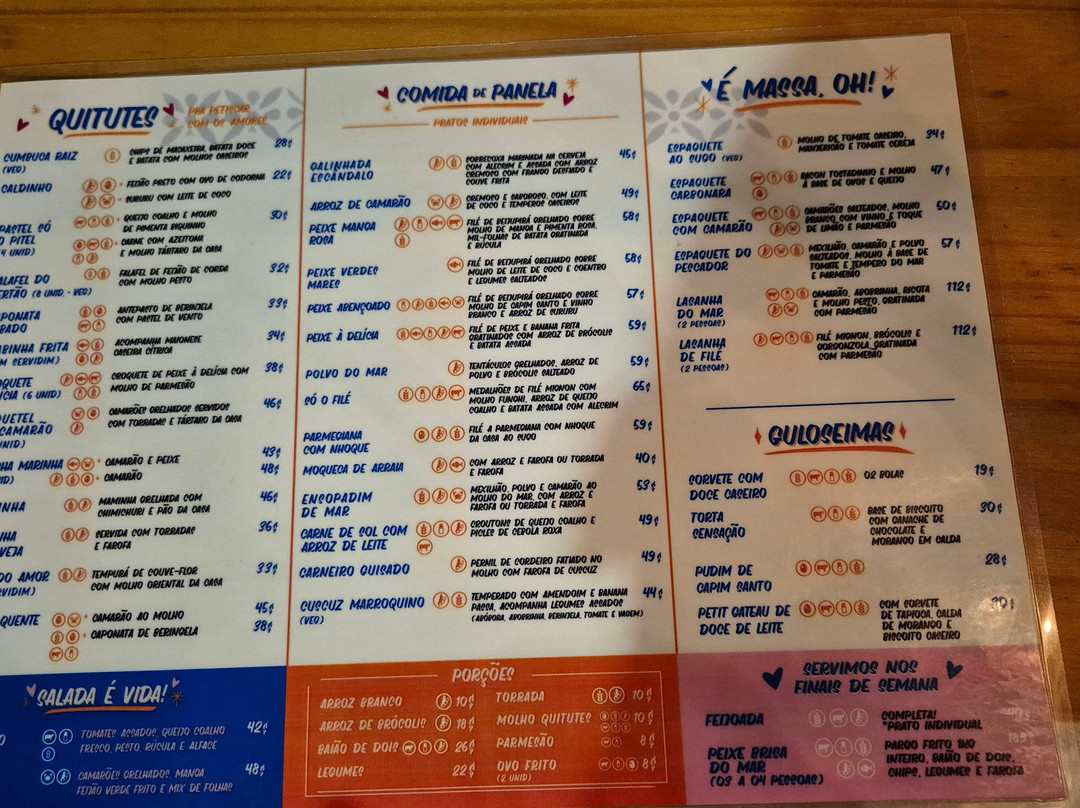 QUITUTES
PRA PETISCAR
COM OS AMORES
CUMBUCA RAIZ
(VEG)
CHIPS DE MACAXEIRA, BATATA DOCE
E BATATA COM MOLHOS CASEIROS
28¢
CALDINHO
• FEIJÃO PRETO COM OVO DE CODORNA
22¢
• SURURU COM LEITE DE COCO
PASTEL SÓ
O PITEL
(4 UNID)
• QUEIJO COALHO E MOLHO
DE PIMENTA BIQUINHO
30¢
• CARNE COM AZEITONA
E MOLHO TÁRTARO DA CASA
ALAFEL DO
ERTÃO (8 UNID • VEG)
FALAFEL DE FEIJÃO DE CORDA
COM MOLHO PESTO
32¢
PONATA
BADO
ANTEPASTO DE BERINJELA
COM PASTEL DE VENTO
33¢
BINHA FRITA
M SERVIDIM)
ACOMPANHA MAIONESE
CASEIRA CÍTRICA
34¢
OQUETE
ÍCIA (6 UNID)
CROQUETE DE PEIXE À DELÍCIA COM
MOLHO DE PARMESÃO
38¢
QUETEL
CAMARÃO
UNID)
CAMARÕES GRELHADOS SERVIDOS
COM TORRADAS E TÁRTARO DA CASA
46¢
HA MARINHA
ID)
• CAMARÃO E PEIXE
43¢
• CAMARÃO
48¢
INHA
MAMINHA GRELHADA COM
CHIMICHURI E PÃO DA CASA
46¢
NHA
VEJA
SERVIDA COM TORRADAS
E FAROFA
36¢
DO AMOR
VIDIM)
TEMPURÁ DE COUVE-FLOR
COM MOLHO ORIENTAL DA CASA
33¢
QUENTE
• CAMARÃO AO MOLHO
45¢
• CAPONATA DE BERINGELA
38¢
SALADA É VIDA!
TOMATES ASSADOS, QUEIJO COALHO
FRESCO, PESTO, RÚCULA E ALFACE
42¢
CAMARÕES GRELHADOS, MANGA,
FEIJÃO VERDE FRITO E MIX DE FOLHAS
48¢
COMIDA DE PANELA
PRATOS INDIVIDUAIS
GALINHADA
ESCÂNDALO
SOBRECOXA MARINADA NA CERVEJA
COM ALECRIM E ASSADA COM ARROZ
CREMOSO COM FRANGO DESFIADO E
COUVE FRITA
45¢
ARROZ DE CAMARÃO
CREMOSO E SABOROSO, COM LEITE
DE COCO E TEMPEROS CASEIROS
49¢
PEIXE MANGA
ROSA
FILÉ DE BEIJUPIRÁ GRELHADO SOBRE
MOLHO DE MANGA E PIMENTA ROSA,
MIL-FOLHAS DE BATATA GRATINADA
E RÚCULA
58¢
PEIXE VERDES
MARES
FILÉ DE BEIJUPIRÁ GRELHADO SOBRE
MOLHO DE LEITE DE COCO E COENTRO
E LEGUMES SALTEADOS
58¢
PEIXE ABENÇOADO
FILÉ DE BEIJUPIRÁ GRELHADO SOBRE
MOLHO DE CAPIM SANTO E VINHO
BRANCO E ARROZ DE SURURU
57¢
PEIXE À DELÍCIA
FILÉ DE PEIXE E BANANA FRITA
GRATINADOS COM ARROZ DE BRÓCOLIS
E BATATA ASSADA
59¢
POLVO DO MAR
TENTÁCULOS GRELHADOS, ARROZ DE
POLVO E BRÓCOLIS SALTEADO
59¢
SÓ O FILÉ
MEDALHÕES DE FILÉ MIGNON COM
MOLHO FUNGHI, ARROZ DE QUEIJO
COALHO E BATATA ASSADA COM ALECRIM
65¢
PARMEGIANA
COM NHOQUE
FILÉ A PARMEGIANA COM NHOQUE
DA CASA AO SUGO
59¢
MOQUECA DE ARRAIA
COM ARROZ E FAROFA OU TORRADA
E FAROFA
40¢
ENSOPADIM
DE MAR
MEXILHÃO, POLVO E CAMARÃO AO
MOLHO DO MAR, COM ARROZ E
FAROFA OU TORRADA E FAROFA
53¢
CARNE DE SOL COM
ARROZ DE LEITE
CROUTONS DE QUEIJO COALHO E
PICLES DE CEBOLA ROXA
49¢
CARNEIRO GUISADO
PERNIL DE CORDEIRO FATIADO NO
MOLHO COM FAROFA DE CUSCUZ
49¢
CUSCUZ MARROQUINO
(VEG)
TEMPERADO COM AMENDOIM E BANANA
PASSA, ACOMPANHA LEGUMES ASSADOS
(ABÓBORA, ABOBRINHA, BERINJELA, TOMATE E VAGEM)
44¢
PORÇÕES
ARROZ BRANCO 10¢
ARROZ DE BRÓCOLIS 18¢
BAIÃO DE DOIS 26¢
LEGUMES 22¢
TORRADA 10¢
MOLHO QUITUTES 10¢
PARMESÃO 8¢
OVO FRITO 8¢
(2 UNID)
É MASSA, OH!
ESPAGUETE
AO SUGO (VEG)
MOLHO DE TOMATE CASEIRO,
MANJERICÃO E TOMATE CEREJA
34¢
ESPAGUETE
CARBONARA
BACON TOSTADINHO E MOLHO
À BASE DE OVOS E QUEIJO
47¢
ESPAGUETE
COM CAMARÃO
CAMARÕES SALTEADOS, MOLHO
BRANCO COM VINHO E TOQUE
DE LIMÃO E PARMESÃO
50¢
ESPAGUETE DO
PESCADOR
MEXILHÃO, CAMARÃO E POLVO
SALTEADOS, MOLHO À BASE DE
TOMATE E TEMPERO DO MAR
E PARMESÃO
57¢
LASANHA
DO MAR
(2 PESSOAS)
CAMARÃO, ABOBRINHA, RICOTA
E MOLHO PESTO, GRATINADA
COM PARMESÃO
112¢
LASANHA
DE FILÉ
(2 PESSOAS)
FILÉ MIGNON, BRÓCOLIS E
GORGONZOLA, GRATINADA
COM PARMESÃO
112¢
GULOSEIMAS
SORVETE COM
DOCE CASEIRO
02 BOLAS
19¢
TORTA
SENSAÇÃO
BASE DE BISCOITO
COM GANACHE DE
CHOCOLATE E
MORANGO EM CALDA
30¢
PUDIM DE
CAPIM SANTO
28¢
PETIT GATEAU DE
DOCE DE LEITE
COM SORVETE
DE TAPIOCA, CALDA
DE MORANGO E
BISCOITO CASEIRO
SERVIMOS NOS
FINAIS DE SEMANA
FEIJOADA
COMPLETA!
*PRATO INDIVIDUAL
PEIXE BRISA
DO MAR
(03 A 04 PESSOAS)
PARGO FRITO 1KG
INTEIRO, BAIÃO DE DOIS,
CHIPS, LEGUMES E FAROFA